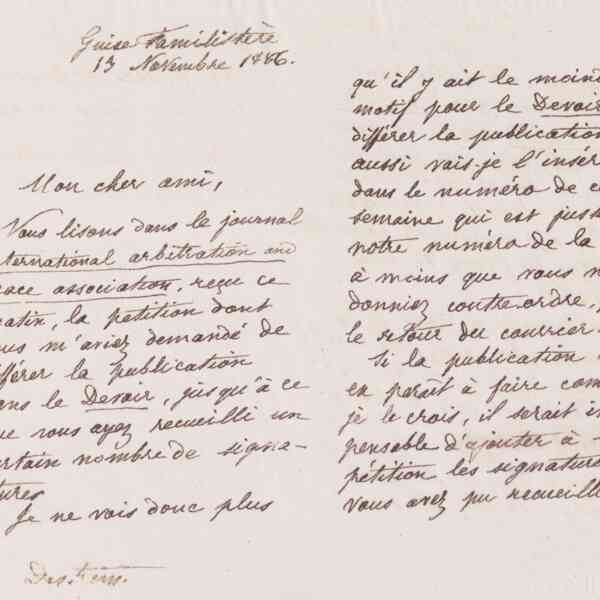 Guise Familistère
13 Novembre 1886.
Mon cher ami,
Nous lisons dans le journal
nternational arbitration and
eace association, reçu ce
atin, la pétition dont
ous m'aviez demandé de
fférer la publication
ans le Devoir, jusqu'à ce
ue vous ayez recueilli un
ertain nombre de signa-
tures
Je ne vois donc plus
qu'il y ait le moind
motif pour le Devoir
différer la publication
aussi vais-je l'insér
dans le numéro de c
semaine qui est just
notre numéro de la
à moins que vous n
donniez contre-ordre,
le retour du courrier.
Si la publication
en paraît à faire com
je le crois, il serait in
pensable d'ajouter à
pétition les signature
vous avez pu recueilli